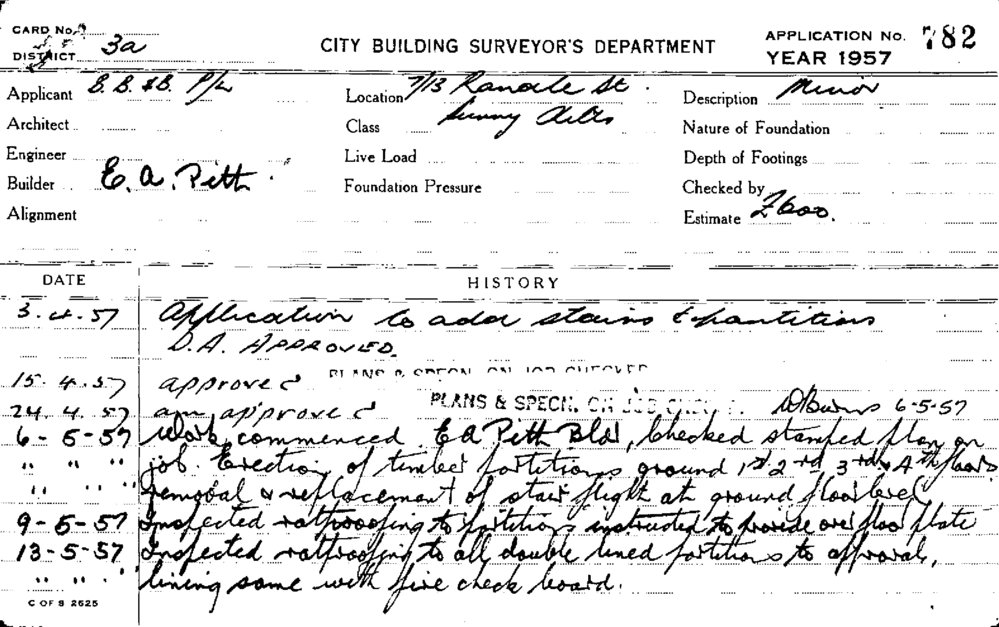 CARD No.
DISTRICT 3a
CITY BUILDING SURVEYOR'S DEPARTMENT
APPLICATION No. 782
YEAR 1957
Applicant B.B. & B. P/L
Location 7/13 Randle St.
Description Minor
Architect
Class Surry Hills
Nature of Foundation
Engineer
Live Load
Depth of Footings
Builder E. A. Pitt.
Foundation Pressure
Checked by
Alignment
Estimate £600.
DATE
HISTORY
3.4.57 Application to add stairs & partitions
D.A. APPROVED.
15.4.57 approved PLANS & SPECN. ON JOB CHECKED
24.4.57 am approved PLANS & SPECN. ON JOB 6-5-57
6-5-57 Work commenced. E A Pitt Bldr, Checked stamped plan on
" " " job. Erection of timber partitions ground 1st 2nd 3rd & 4th floors
" " " removal & replacement of stair flight at ground floor level
9-5-57 Inspected ratproofing to partitions instructed to provide over floor plate
13-5-57 Inspected ratproofing to all double lined partitions to approval,
" " " lining same with fire check board.
C OF S 2625